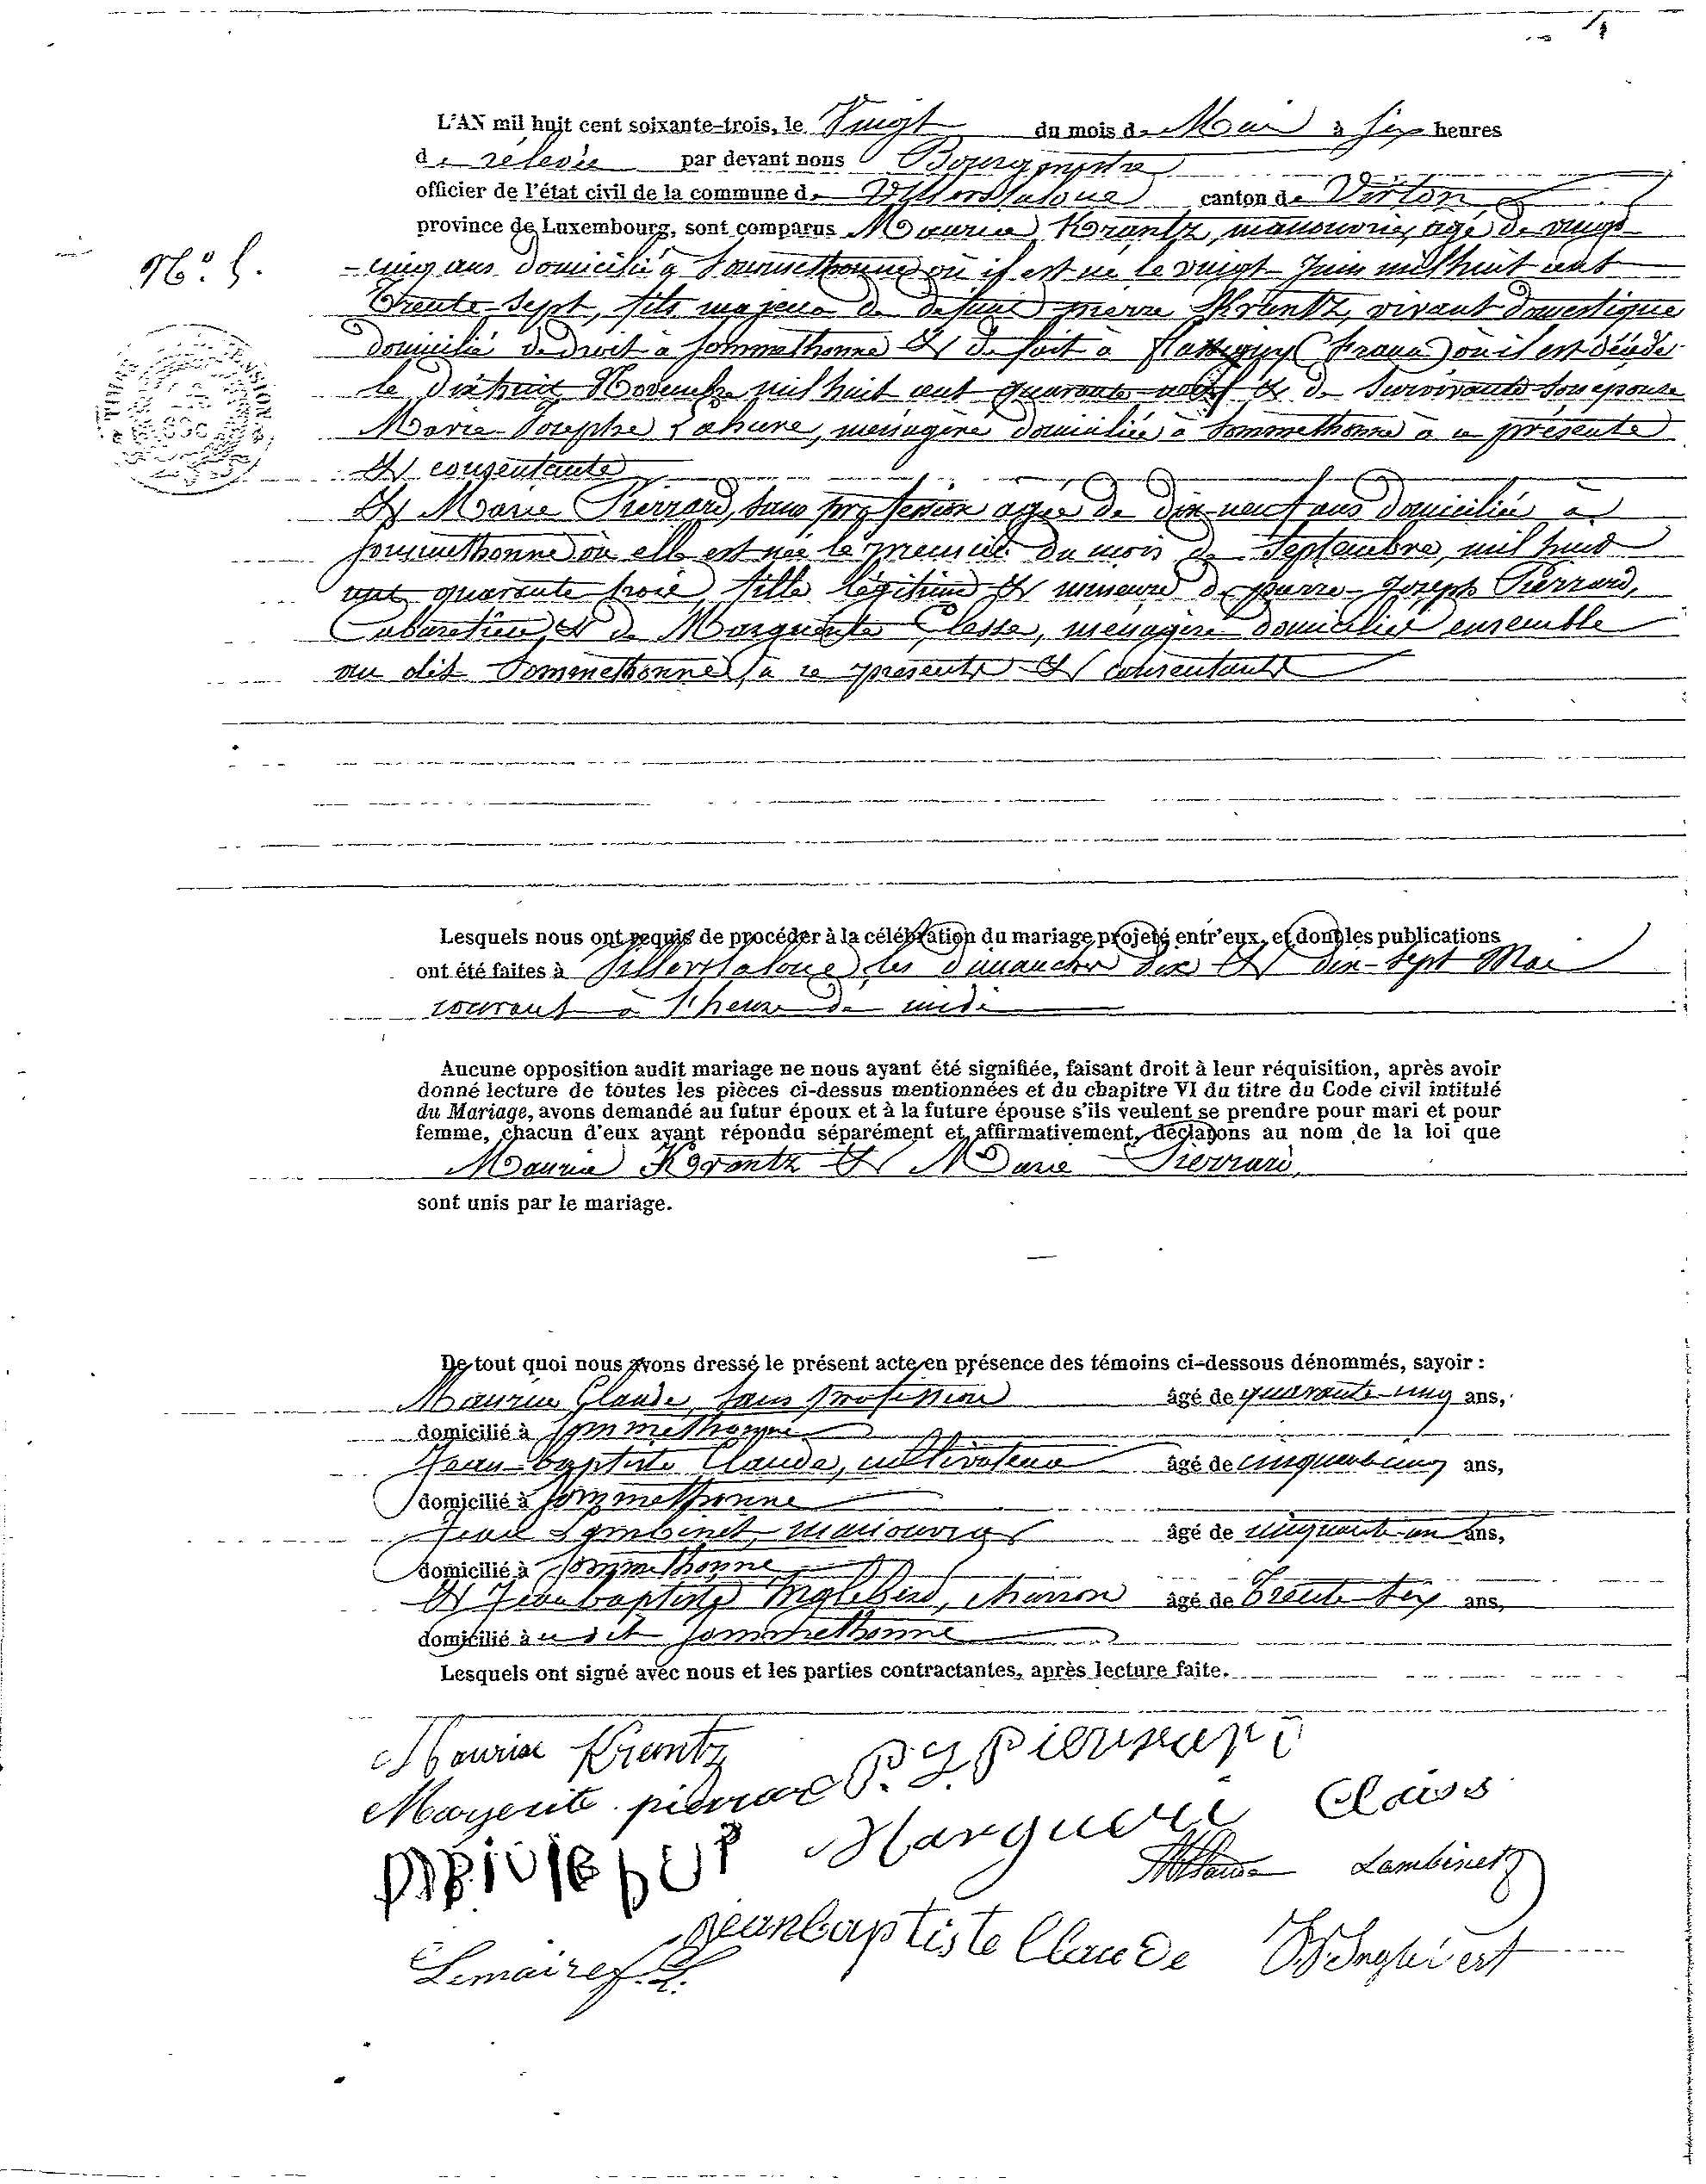 L'AN mil huit cent soixante-trois, le Vingt du mois de Mai à six heures
de relevée par devant nous Bourgmestre
officier de l'état civil de la commune de Villers la loue canton de Virton
province de Luxembourg, sont comparus Maurice Krantz, manouvrier, agé de vingt
N° 5.
-cinq ans domicilié à Sommethonne où il est né le vingt Juin mil huit cent
Trente-sept, fils majeur de défunt pierre Krantz, vivant Domestique
Domicilié de droit à Sommethonne & de fait à flassigny (france) où il est décédé
le dix huit Novembre mil huit cent quarante-neuf & de survivante son épouse
Marie-Josephe Lahure, ménagère domiciliée à Sommethonne à ce présente
& consentante
& Marie Pierrard, sans profession agée de dix-neuf ans domiciliée à
Sommethonne où elle est née le premier du mois de Septembre, mil huit
cent quarante trois, fille légitime & mineure de pierre-Joseph Pierrard,
Cabaretier, & de Marguerite Classe, ménagère domiciliés ensemble
au dit Sommethonne, à ce présents & consentants
Lesquels nous ont requis de procéder à la célébration du mariage projeté entr'eux, et dont les publications
ont été faites à Villers la loue les dimanches dix & dix-sept Mai
courant à l'heure de midi
Aucune opposition audit mariage ne nous ayant été signifiée, faisant droit à leur réquisition, après avoir
donné lecture de toutes les pièces ci-dessus mentionnées et du chapitre VI du titre du Code civil intitulé
du Mariage, avons demandé au futur époux et à la future épouse s'ils veulent se prendre pour mari et pour
femme, chacun d'eux ayant répondu séparément et affirmativement, déclarons au nom de la loi que
Maurice Krantz & Marie Pierrard,
sont unis par le mariage.
De tout quoi nous avons dressé le présent acte en présence des témoins ci-dessous dénommés, savoir :
Maurice Claude, sans profession âgé de quarante-cinq ans,
domicilié à Sommethonne
Jean-baptiste Claude, cultivateur âgé de cinquante cinq ans,
domicilié à Sommethonne
Lambinet, manouvrier âgé de cinquante-un ans,
domicilié à Sommethonne
& Jean baptiste Inglebert, charron âgé de Trente six ans,
domicilié à u dit Sommethonne
Lesquels ont signé avec nous et les parties contractantes, après lecture faite.
Maurice Krantz P. J. Pierrard
Margerite pierrard Claiss
Marguerite
Claude Lambinet
jean baptiste Claude Inglebert
Lemaire